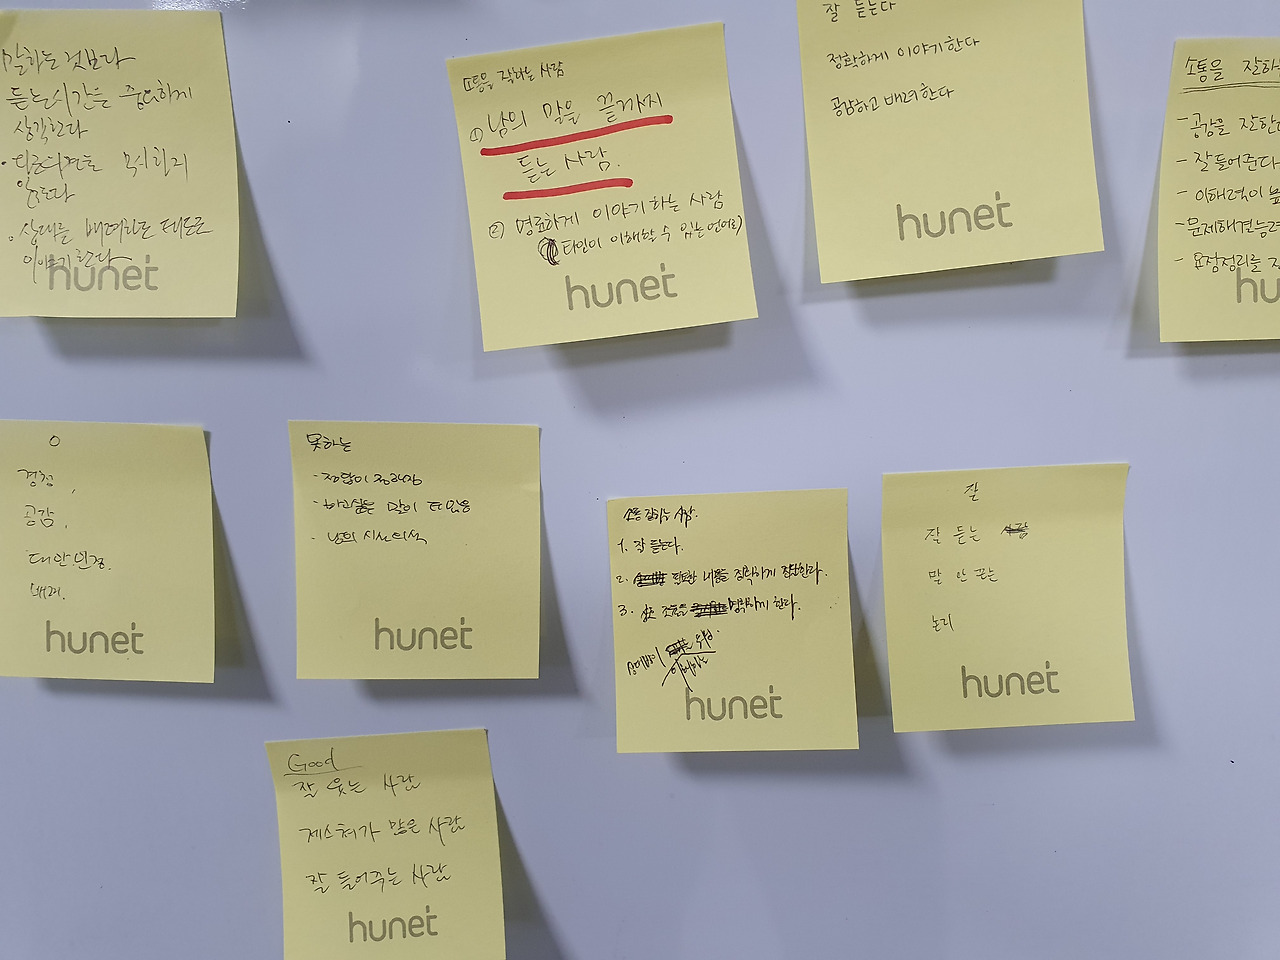 말하는 것보다
듣는 시간을 중요하게
생각한다
않는다
상대를 배려하는 태도로
이야기한다
hunet
소통을 잘하는 사람
① 남의 말을 끝까지
듣는 사람.
② 명료하게 이야기하는 사람
(타인이 이해할 수 있는 언어로)
hunet
잘 듣는다
정확하게 이야기한다
공감하고 배려한다
hunet
소통을 잘하
- 공감을 잘한다
- 잘 들어준다
- 이해력이 높
- 문제해결능력
- 요점정리를 잘
hu
O
경청,
공감,
배려.
hunet
못하는
- 정답이 정해짐
- 하고싶은 말이
- 남의 시선의식
hunet
소통 잘하는 사람.
1. 잘 듣는다.
2. 필요한 내용을 정확하게 전달한다.
3. 명확하게 한다.
hunet
잘
잘 듣는
말 안 끊는
논리
hunet
Good
잘 웃는 사람
제스처가 많은 사람
잘 들어주는 사람
hunet